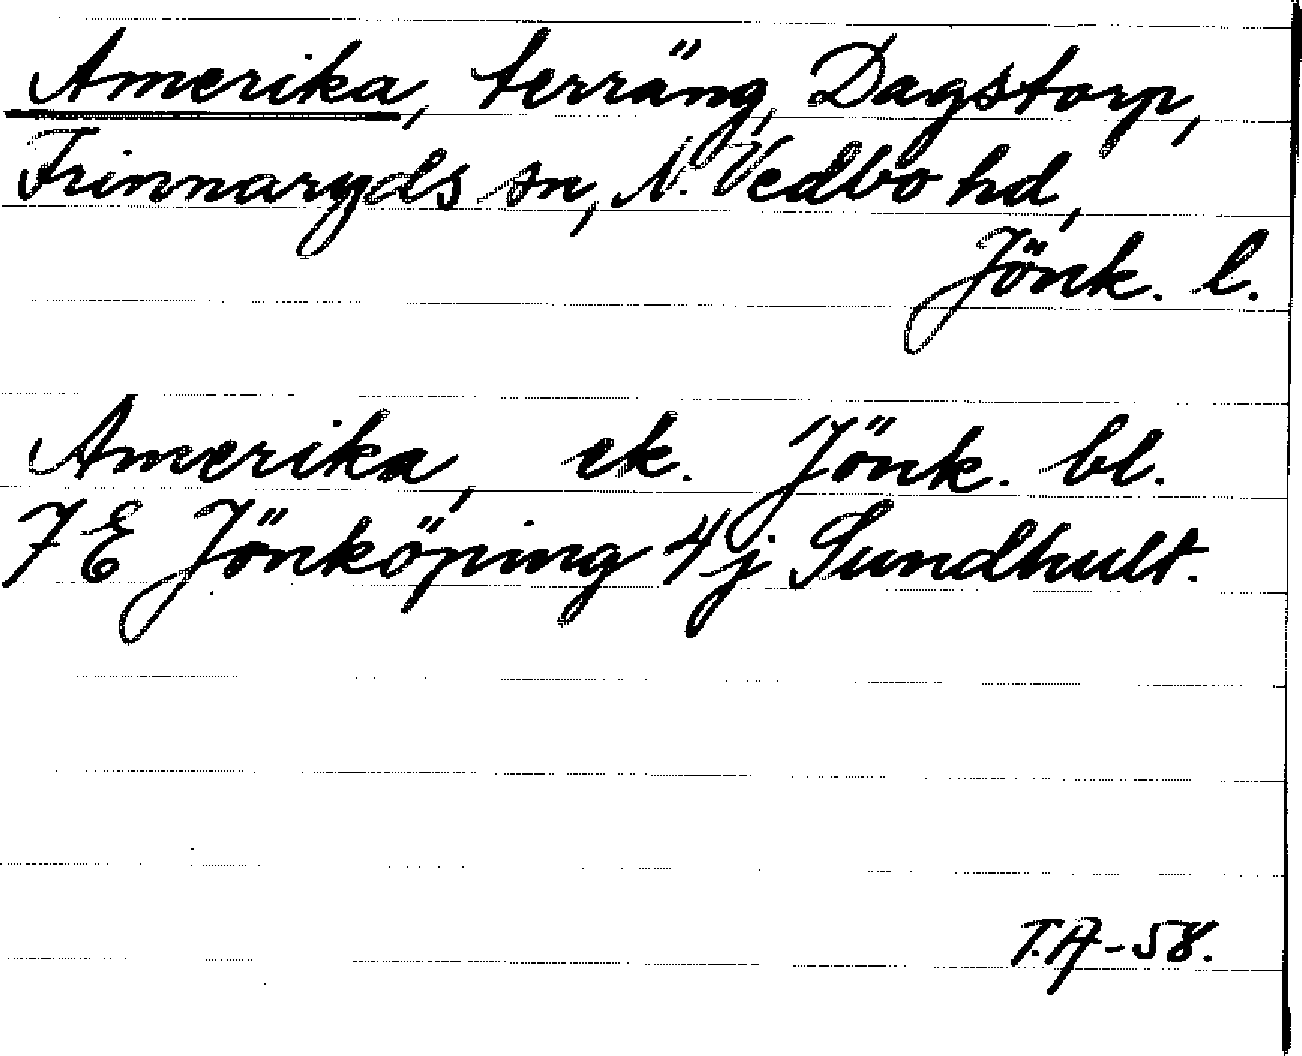 Amerika, terräng, Dagstorp,
Frinnaryds sn, N. Vedbo hd,
Jönk. l.
Amerika, ek. Jönk. bl.
7E Jönköping 4j Sundhult.
T.A-58.